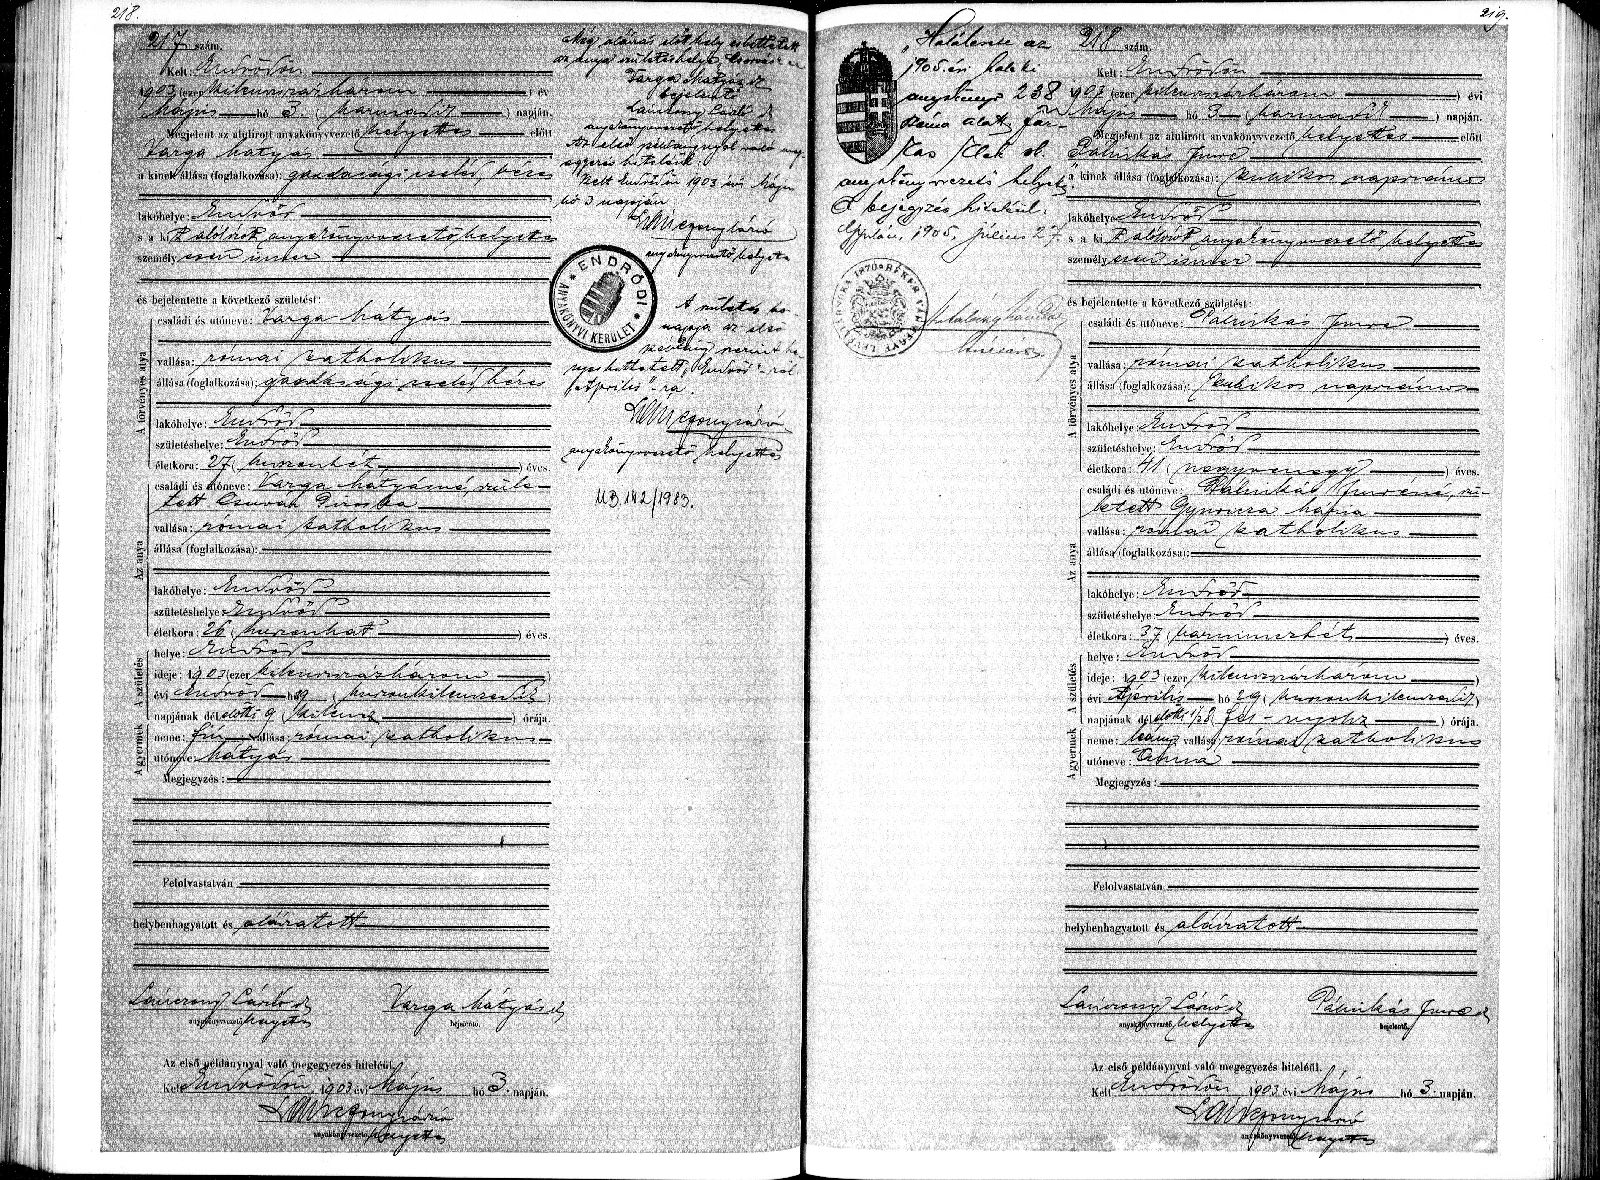 218.
217 szám.
Kelt: Endrődön
1903 (ezer kilenczszázhárom) év
Május hó 3. (harmadik) napján.
Megjelent az alulirott anyakönyvvezető helyettes előtt
Varga Mátyás
a kinek állása (foglalkozása): gazdasági cseléd, béres
lakóhelye: Endrőd
s a kit alólirott anyakönyvvezető helyettes
személyesen ismer
és bejelentette a következő születést:
A törvényes atya
családi és utóneve: Varga Mátyás
vallása: római katholikus
állása (foglalkozása): gazdasági cseléd, béres
lakóhelye: Endrőd
születéshelye: Endrőd
életkora: 27 (huszonhét) éves.
Az anya
családi és utóneve: Varga Mátyásné, szüle-
tett Piroska
vallása: római katholikus
állása (foglalkozása):
lakóhelye: Endrőd
születéshelye: Endrőd
életkora: 26 (huszonhat) éves.
A születés
helye: Endrőd
ideje: 1903 (ezer kilenczszázhárom)
évi Endrőd hó 29 (huszonkilenczedik)
napjának délelőtti 9 (kilencz) órája.
A gyermek
neme: fiu vallása: római katholikus
utóneve: Mátyás
Megjegyzés:
Felolvastatván
helybenhagyatott és aláiratott
Lánczony László Varga Mátyás
anyakönyvvezető helyettes bejelentő.
Az első példánynyal való megegyezés hiteléül.
Kelt Endrődön, 1903 évi Május hó 3. napján.
Lánczony László
anyakönyvvezető helyettes
Még aláirás előtt
az anya születéshelye
Varga Mátyás
bejelentő
Lánczony László
anyakönyvvezető helyettes
Az első példánynyal való meg-
egyezés hiteléül.
Kelt Endrődön 1903 évi Május
hó 3 napján
Lánczony László
anyakönyvvezető helyettes
ENDRŐDI
ANYAKÖNYVI KERÜLET
A születés hó-
napja az első
szerint
"Endrőd"-ről
"Április"-ra.
Lánczony László
anyakönyvvezető helyettes
MB.142/1983.
219.
"Halálesete az
1905. évi
anyakönyv 238
szám alatt
Farkas Elek sk.
anyakönyvvezető helyettes
A bejegyzés hiteléül.
Gyulán, 1905. julius 27.
218 szám.
Kelt: Endrődön
1903 (ezer kilenczszázhárom) évi
Május hó 3 (harmadik) napján.
Megjelent az alulirott anyakönyvvezető helyettes előtt
Pálinkás Imre
a kinek állása (foglalkozása): kubikos napszámos
lakóhelye Endrőd
s a kit alólirott anyakönyvvezető helyettes
személyesen ismer
és bejelentette a következő születést:
A törvényes atya
családi és utóneve: Pálinkás Imre
vallása: római katholikus
állása (foglalkozása): kubikos napszámos
lakóhelye: Endrőd
születéshelye: Endrőd
életkora: 41 (negyvenegy) éves.
Az anya
családi és utóneve: Pálinkás Imréné, szü-
letett Gyuricza Mária
vallása: római katholikus
állása (foglalkozása):
lakóhelye: Endrőd
születéshelye: Endrőd
életkora: 37 (harminczhét) éves.
A születés
helye: Endrőd
ideje: 1903 (ezer kilenczszázhárom)
évi Április hó 29 (huszonkilenczedik)
napjának délelőtti 1/28 (fél-nyolcz) órája.
A gyermek
neme: leány vallása: római katholikus
utóneve: Anna
Megjegyzés:
Felolvastatván
helybenhagyatott és aláiratott
Lánczony László Pálinkás Imre
anyakönyvvezető helyettes bejelentő.
Az első példánynyal való megegyezés hiteléül.
Kelt Endrődön 1903 évi Május hó 3. napján.
Lánczony László
anyakönyvvezető helyettes